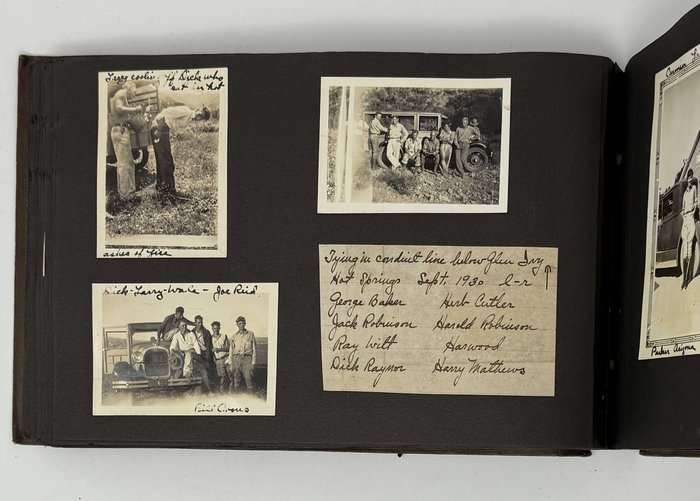 Larry coolin' off Dick who
sat in hot
ashes of fire
Dick-Larry-Wade - Joe Reid
Bill Owens
Tying in conduit line below Glen Ivy
Hot Springs Sept. 1930 l-r ↑
George Baker Herb Cutler
Jack Robinson Harold Robinson
Ray Wilt Harwood
Dick Raynor Harry Mathews
Parker Arizona